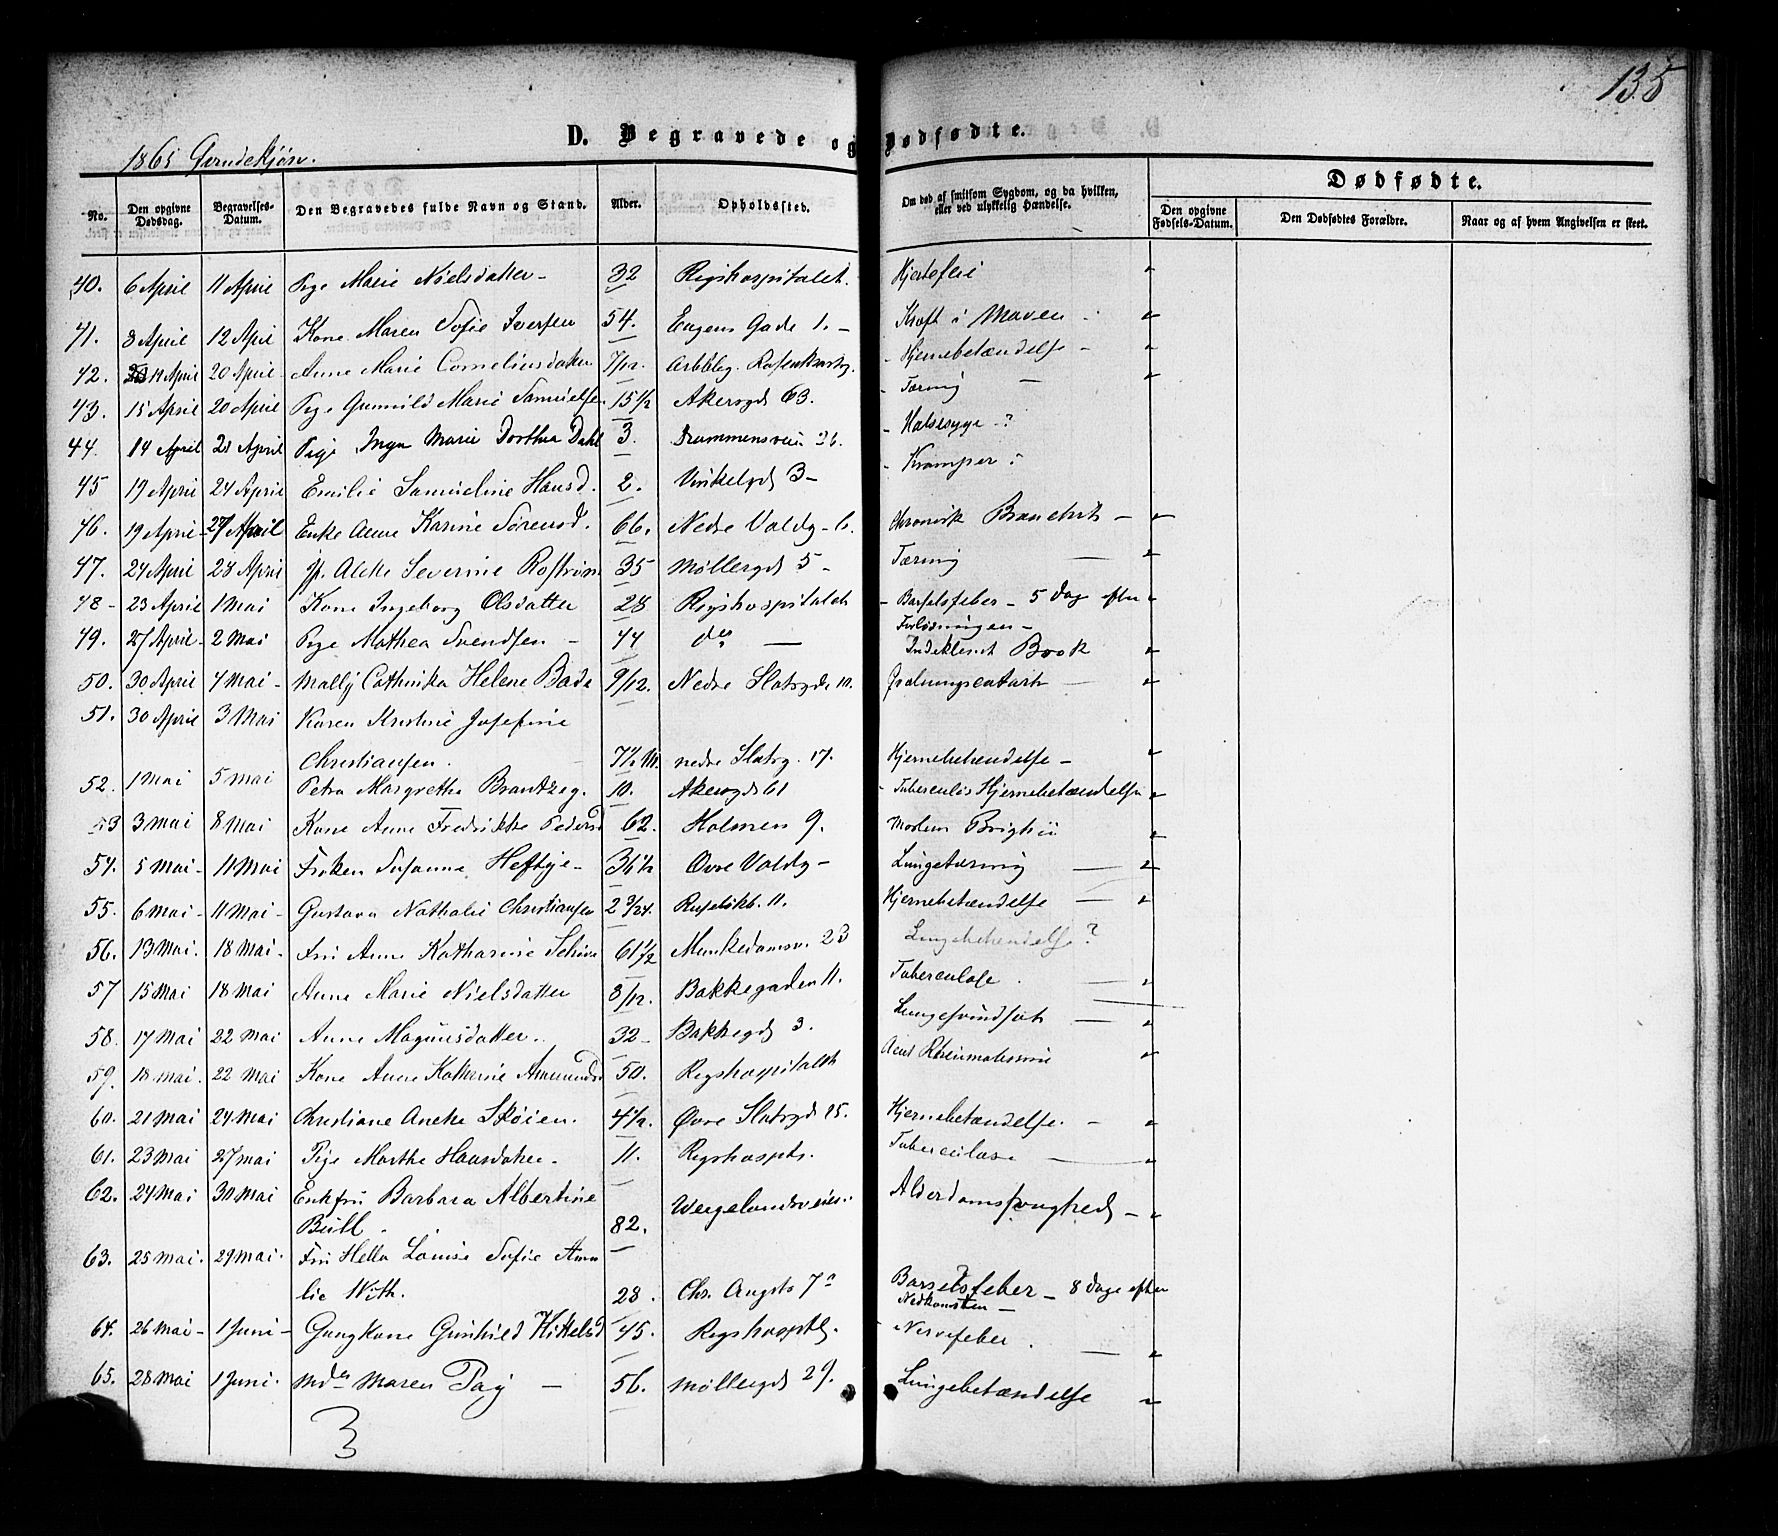 135
D. Begravede og Dødfødte.
1865 Qvindekjøn.
Dødfødte.
No. Den opgivne Dødsdag. Begravelses-Datum. Den Begravedes fulde Navn og Stand. Alder. Opholdssted. Om død af smitsom Sygdom, og da hvilken, eller ved ulykkelig Hændelse. Den opgivne Fødsels-Datum. Den Dødfødtes Forældre. Naar og af hvem Angivelsen er skeet.
40. 6 April 11 April Pige Marie Nielsdatter - 32 Rigshospitalet. Hjertefeil "
41. 8 April 12 April Kone Maren Sofie Iversen 54. Eugens Gade 1. - Kræft i Maven - "
42. 14 April 20 April Anne Marie Corneliusdatter 7/12. Arbbg. Rosenkrantzg. Hjernebetændelse - "
43. 15 April 20 April Pige Gunnild Marie Samuelsen 15 1/2 Akersgd 63. Tæring - "
44. 14 April 21 April Pige Inga Marie Dorthea Dahl 3. Drammensvein 26. Halssyge ?
45 19 April 24 April Emilie Samueline Hansd. 2. Vinkelgd 3 - Kramper ?
46. 19 April 27 April Enke Anne Karine Sørensd. 66. Nedre Voldg - 6. Chronisk Bronchit - "
47. 24 April 28 April p. Aleke Severine Rostrøm 35 Møllergd 5 - Tæring - "
48 - 23 April 1 Mai Kone Ingeborg Olsdatter 28 Rigshospitalet - Barselsfeber - 5 Dag efter "
Forløsningen -
49. 27 April - 2 Mai Pige Mathea Svendsen - 44 do - Indeklemt Brok "
50. 30 April 4 Mai - Mally Cathinka Helene Bade 9/12. Nedre Slotsgd 10. Gulningscatarh - "
51. 30 April 3 Mai Karen Kristine Josefine
Christiansen. 7 1/2 M. nedre Slotsg. 17. Hjernebetændelse - "
52. 1 Mai 5 Mai Petra Margrethe Brantzeg. 10. Akersgd 61 Tuberculøs Hjernebetændelse "
53 3 Mai 8 Mai Kone Anne Fredrikke Pedersd 62. Holmen 9. Morbus Brightii "
54. 5 Mai - 11 Mai Frøken Susanne Heftye - 36 1/2 Øvre Voldg - Lungetæring - "
55. 6 Mai - 11 Mai - Gustava Nathalie Christiansen 2 3/24. Ruseløkb. 11. Hjernebetændelse - "
56. 13 Mai. 18 Mai - Fru Anne Katharine Schive 61 1/2 Munkedamsv. 23 Lungebetændelse ?
57 15 Mai 18 Mai Anne Marie Nielsdatter 8/12. Bakkegaden 11. Tuberculose. - "
58. 17 Mai 22 Mai Anne Magnusdatter. 32 - Bakkegd 3. Lungesvindsot - "
59. 18 Mai. 22 Mai Kone Anne Katharine Amundsd 50. Rigshospitalet Acut Rheumatisme "
60. 21 Mai 24 Mai Christiane Anette Skøien. 4 1/2. Øvre Slotsgd 25. Hjernebetændelse. - "
61. 23 Mai 27 Mai Pige Marthe Hansdatter. 11. Rigshospts. Tuberculose - "
62. 24 Mai 30 Mai Enkfru Barbara Albertine
Bull. 82. Wergelandsveien. Alderdomssvaghed - "
63. 25 Mai. 29 Mai. Fru Hella Lovise Sofie Ama
lie With. 28. Chr. Augsts 7a Barselsfeber - 8 Dage efter
Nedkomsten -
64. 26 Mai - 1 Juni - Gangkone Gunhild Kittelsd 45. Rigshosptl. Nervefeber. - "
65. 28 Mai 1 Juni. Mdm Maren Pay - 56. Møllergd 29. Lungebetændelse "